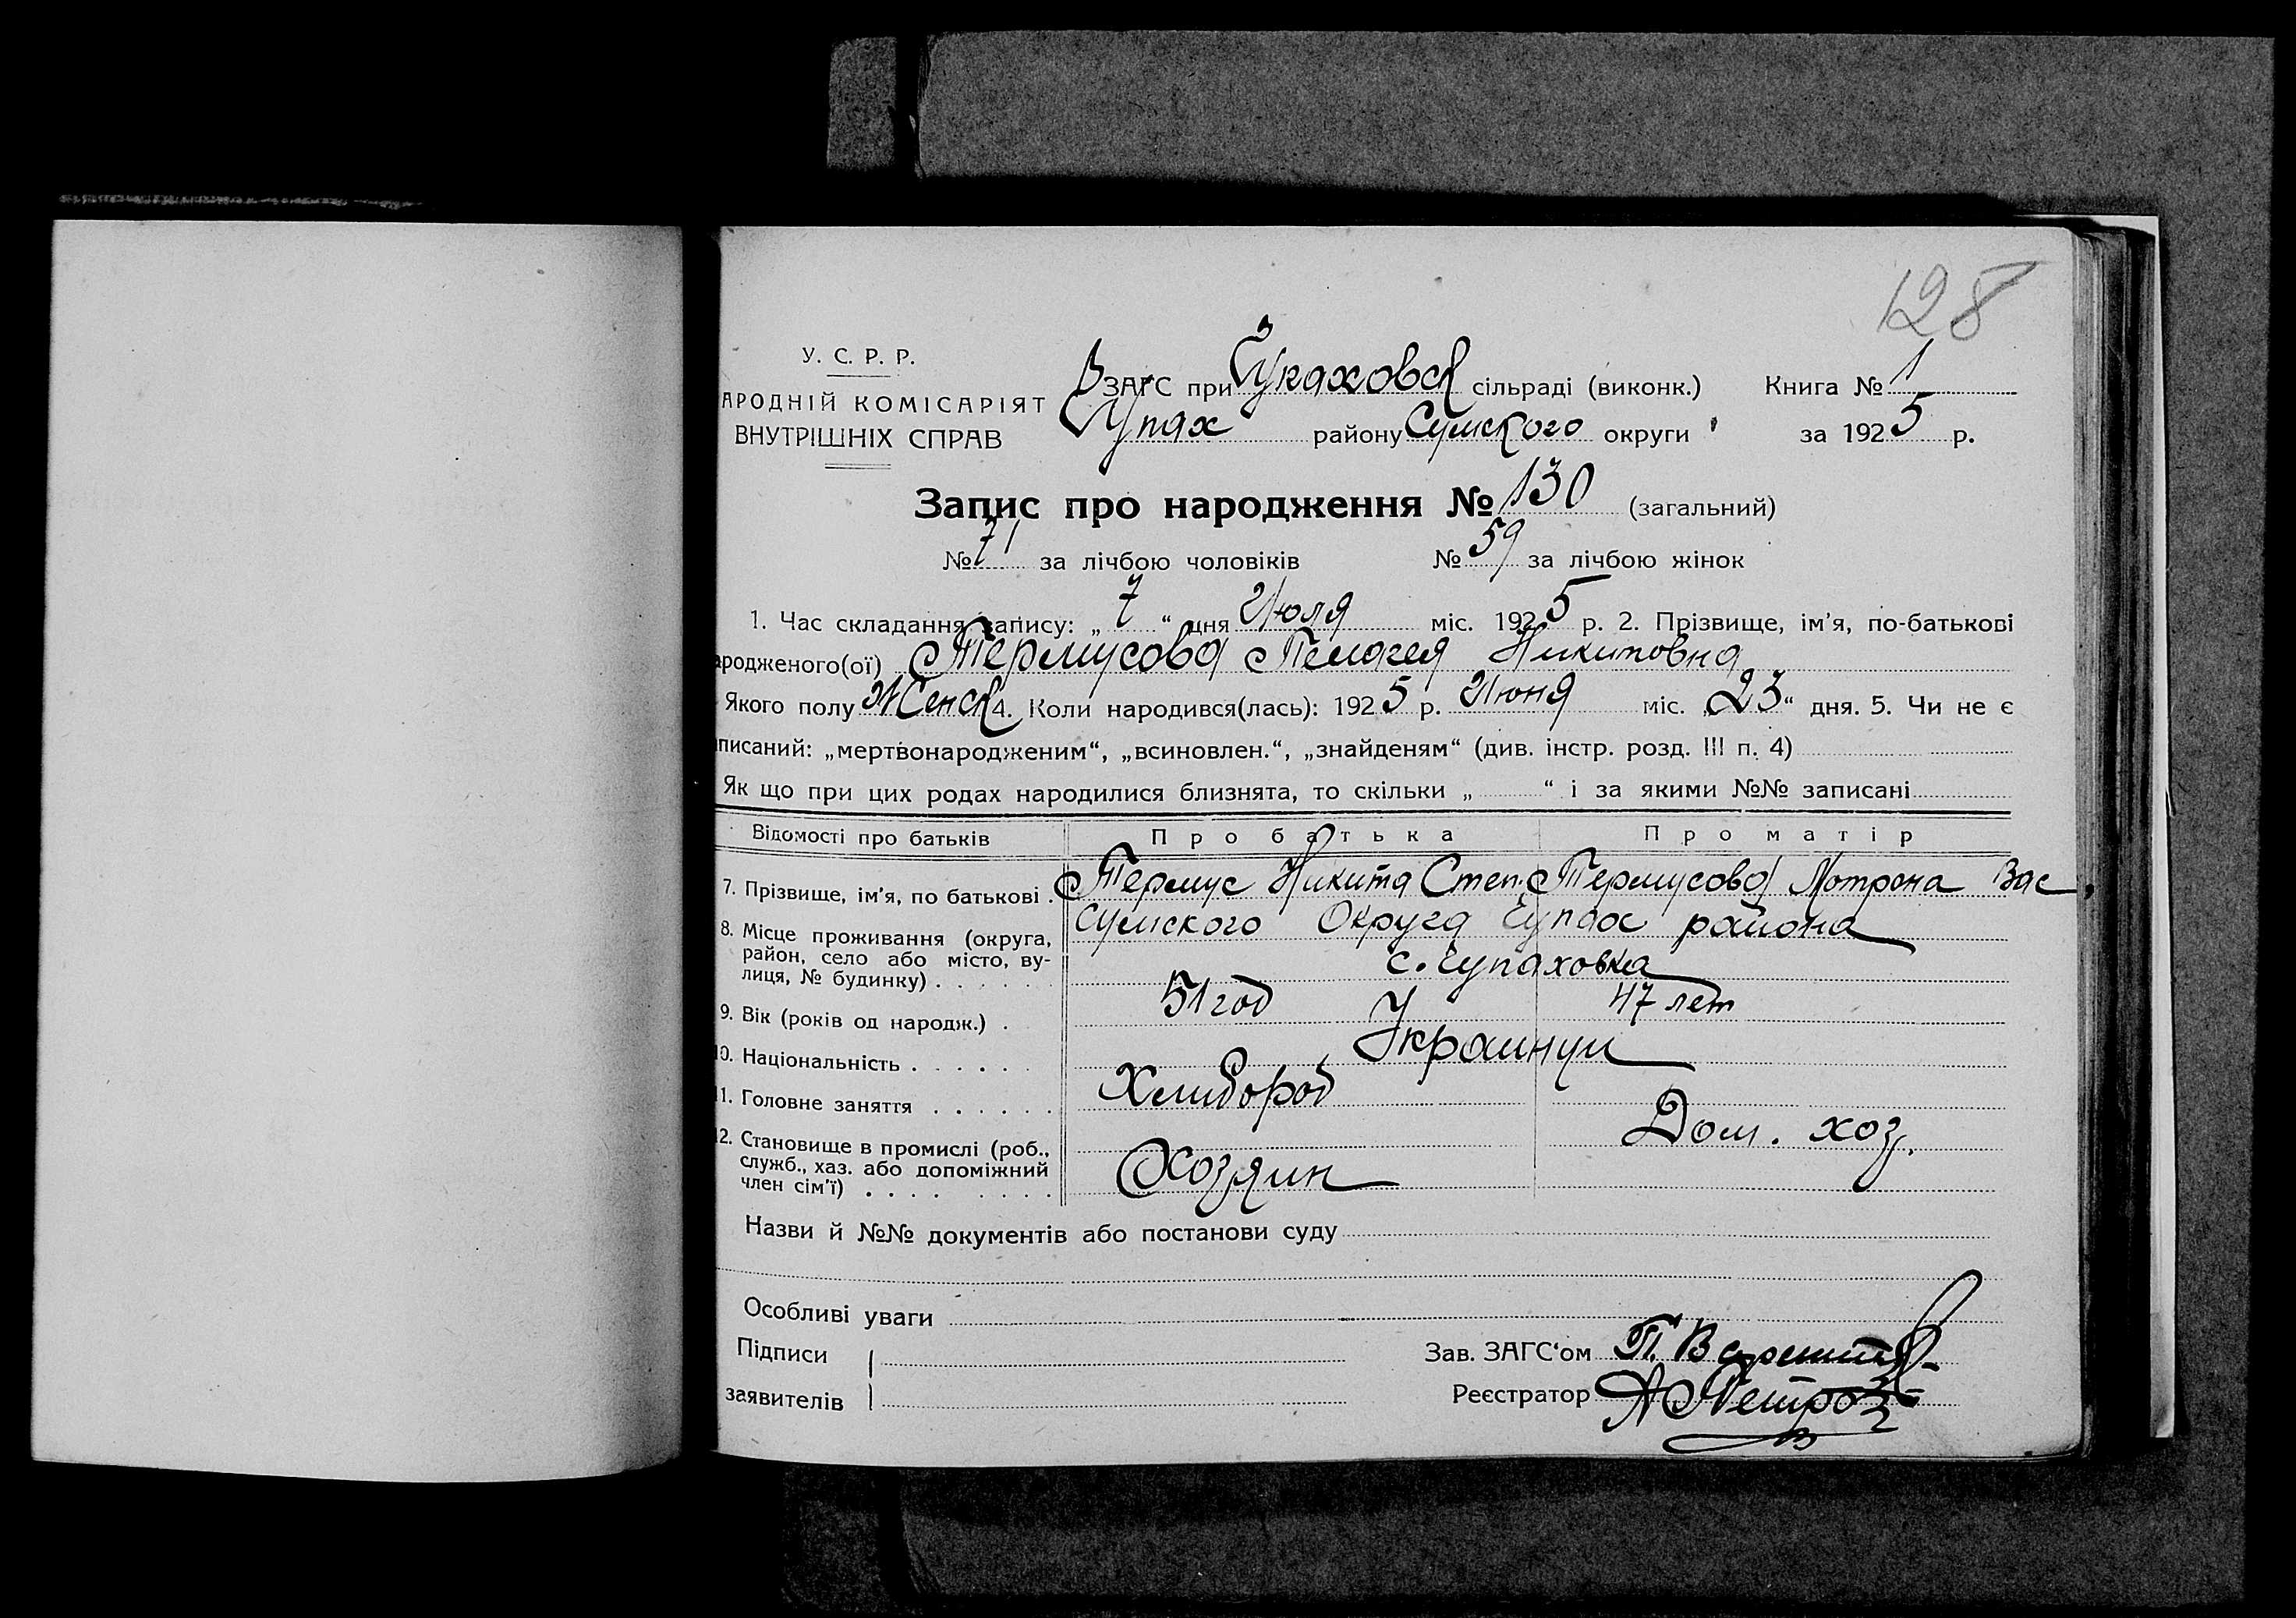 128
У. С. Р. Р.
АРОДНІЙ КОМІСАРІЯТ
ВНУТРІШНІХ СПРАВ
В ЗАГС при сільраді (виконк.) Книга № 1
району Сумского округи за 1925 р.
Запис про народження № 130 (загальний)
№ 71 за лічбою чоловіків № 59 за лічбою жінок
1. Час складання запису: „ 7 “ дня Июля міс. 1925 р. 2. Прізвище, ім'я, по-батькові
ародженого(ої) Термусова Пелагея Никитовна
Якого полу Женск 4. Коли народився(лась): 1925 р. Июня міс. „ 23 “ дня. 5. Чи не є
писаний: „мертвонародженим“, „всиновлен.“, „знайденям“ (див. інстр. розд. III п. 4)
Як що при цих родах народилися близнята, то скільки „ “ і за якими №№ записані
Відомості про батьків Про батька Про матір
7. Прізвище, ім'я, по батькові . Термус Никита Степ. Термусова Мотрона Вас
8. Місце проживання (округа, район, село або місто, вулиця, № будинку) . . . . . . Сумского Округа Чупах района
с. Чупаховка
9. Вік (років од народж.) . 51 год 47 лет
10. Національність . . . . . . Украинци
11. Головне заняття . . . . . . Хлибороб
12. Становище в промислі (роб., служб., хаз. або допоміжний член сім'ї) . . . . . . . . Хозяин Дом. хоз.
Назви й №№ документів або постанови суду
Особливі уваги
Підписи
заявителів
Зав. ЗАГС'ом П.
Реєстратор А Петров